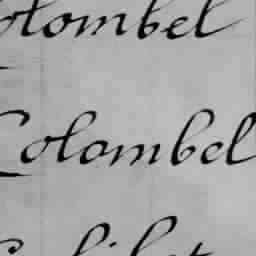 Colombel
Colombel